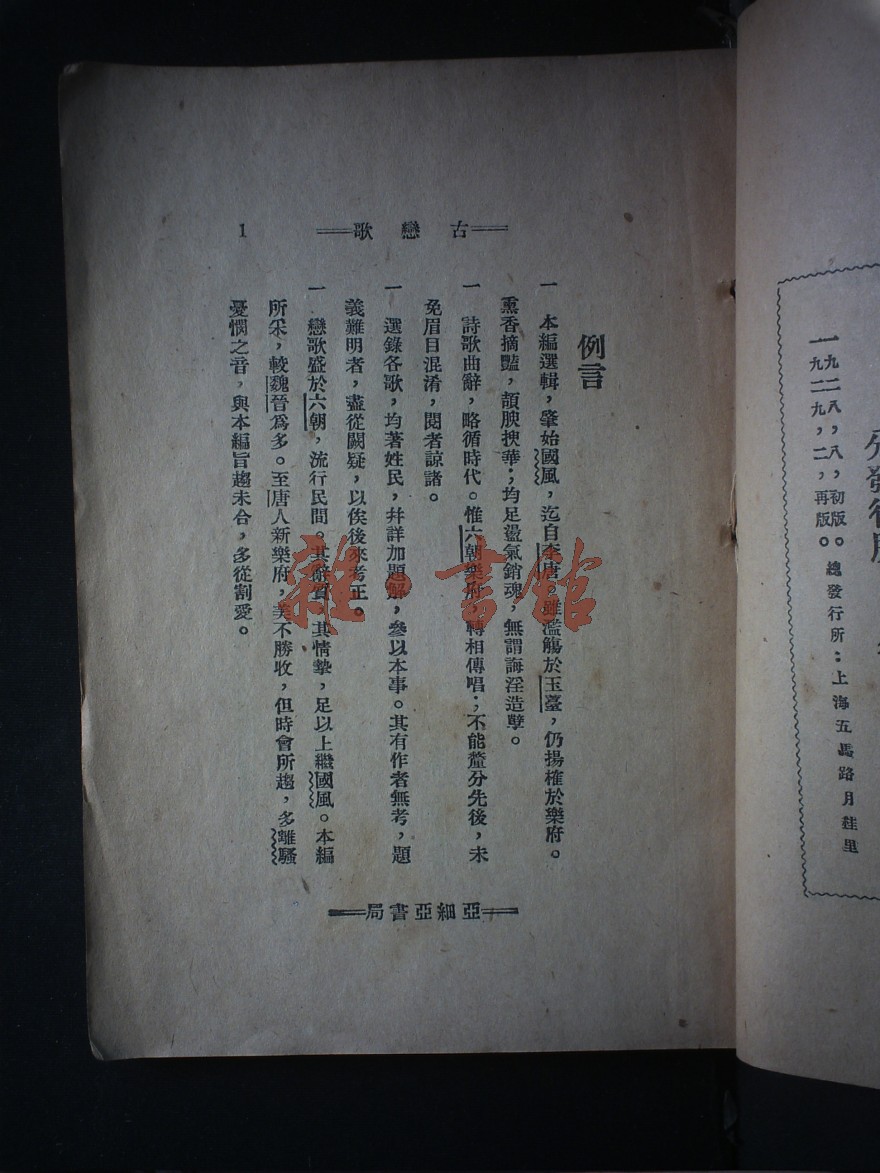 一九二八，八，初版。
一九二九，二，再版。
總發行所：上海五馬路月桂里
1
古戀歌
例言
一　本編選輯，肇始國風，迄自李唐。雖濫觴於玉臺，仍揚榷於樂府。
薰香摘豔，頷腴挾華；均足盪氣銷魂，無謂誨淫造孽。
一　詩歌曲辭，略循時代。惟六朝樂府，轉相傳唱；不能釐分先後，未
免眉目混淆，閱者諒諸。
一　選錄各歌，均著姓民，幷詳加題解，參以本事。其有作者無考，題
義難明者，盡從闕疑，以俟後來考正。
一　戀歌盛於六朝，流行民間。其辭質，其情摯，足以上繼國風。本編
所釆，較魏晉爲多。至唐人新樂府，美不勝收，但時會所趨，多離騷
憂憫之音，與本編旨趨未合，多從割愛。
亞細亞書局
雜·書館